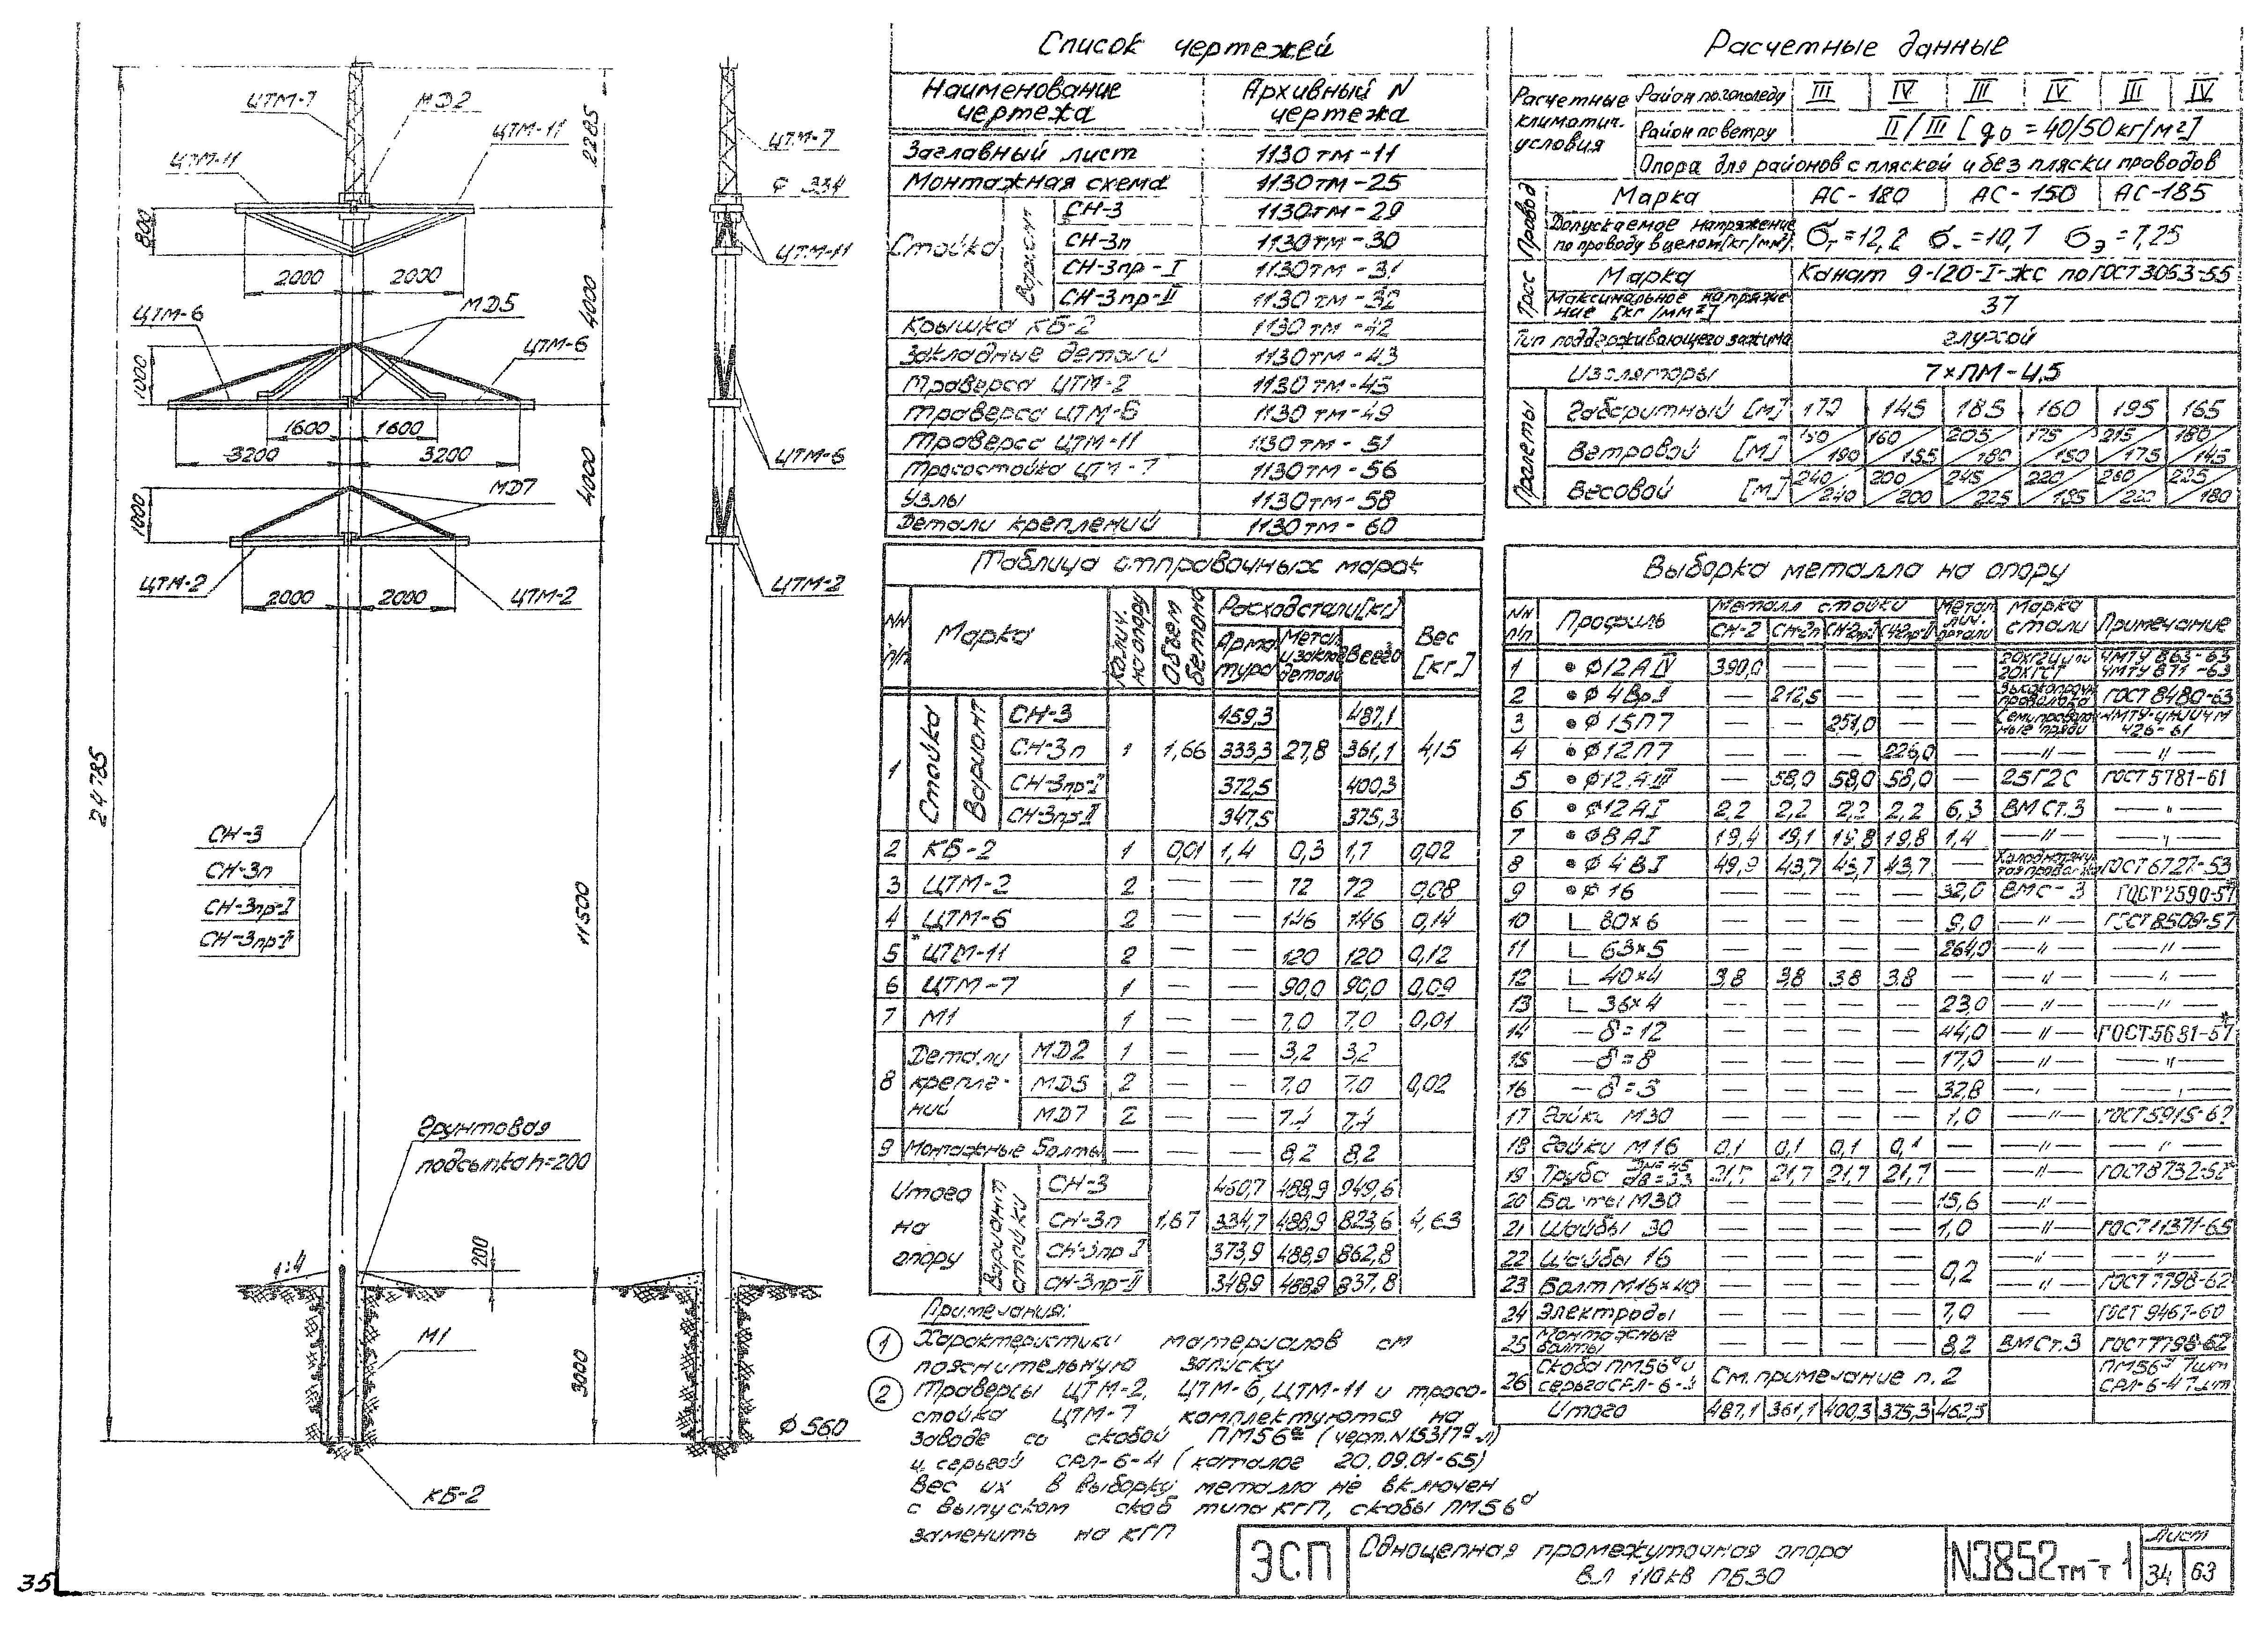 ЦТМ-7
МД2
ЦТМ-11
ЦТМ-11
2285
800
2000
2000
4000
МД5
ЦТМ-6
ЦТМ-6
1000
1600
1600
3200
3200
4000
МД7
1000
ЦТМ-2
2000
2000
ЦТМ-2
24785
СН-3
СН-3п
СН-3пр-I
СН-3пр-II
11500
Грунтовая
подсыпка h=200
1:4
200
М1
3000
КБ-2
ЦТМ-7
φ 334
ЦТМ-11
ЦТМ-6
ЦТМ-2
φ 560
35
Список чертежей
Наименование чертежа Архивный N чертежа
Заглавный лист 1130тм-11
Монтажная схема 1130тм-25
Стойка Вариант СН-3 1130тм-29
СН-3п 1130тм-30
СН-3пр-I 1130тм-31
СН-3пр-II 1130тм-32
Крышка КБ-2 1130тм-42
Закладные детали 1130тм-43
Траверса ЦТМ-2 1130тм-45
Траверса ЦТМ-6 1130тм-49
Траверса ЦТМ-11 1130тм-51
Тросостойка ЦТМ-7 1130тм-56
Узлы 1130тм-58
Детали креплений 1130тм-60
Таблица отправочных марок
NN п/п Марка Колич. на опору Объем бетона Расход стали [кг] Вес [кг]
Арматура Метал. и заклад. детали Всего
1 Стойка Вариант СН-3 459,3 487,1
СН-3п 1 1,66 333,3 27,8 361,1 4,15
СН-3пр-I 372,5 400,3
СН-3пр-II 347,5 375,3
2 КБ-2 1 0,01 1,4 0,3 1,7 0,02
3 ЦТМ-2 2 — — 72 72 0,08
4 ЦТМ-6 2 — — 146 146 0,14
5 * ЦТМ-11 2 — — 120 120 0,12
6 ЦТМ-7 1 — — 90,0 90,0 0,09
7 М1 1 — — 7,0 7,0 0,01
8 Детали креплений МД2 1 — — 3,2 3,2
МД5 2 — — 7,0 7,0 0,02
МД7 2 — —
9 Монтажные болты — — — 8,2 8,2
Итого на опору Вариант стойки СН-3 460,7 488,9 949,6
СН-3п 1,67 334,7 488,9 823,6 4,63
СН-3пр I 373,9 488,9 862,8
СН-3пр-II 348,9 488,9 837,8
Примечания:
1 Характеристики материалов см
пояснительную записку
2 Траверсы ЦТМ-2, ЦТМ-6, ЦТМ-11 и тросо-
стойка ЦТМ-7 комплектуются на
заводе со скобой ПМ56а (черт.N15317а-л)
и серьгой СРЛ-6-4 (каталог 20.09.01-65)
Вес их в выборку металла не включен
с выпуском скоб типа КГП, скобы ПМ56а
заменить на КГП
Расчетные данные
Расчетные климатич. условия Район по гололеду III IV III IV III IV
Район по ветру II/III [q0 = 40/50 кг/м²]
Опора для районов с пляской и без пляски проводов
Провод Марка АС-180 АС-150 АС-185
Допускаемое напряжение по проводу в целом [кг/мм²] σг=12,2 σ-=10,7 σэ=7,25
Трос Марка Канат 9-120-I-жс по ГОСТ 3063-55
Максимальное напряжение [кг/мм²] 37
Тип поддерживающего зажима глухой
Изоляторы 7×ПМ-4,5
Пролеты Габаритный [м] 170 145 185 160 195 165
Ветровой [м] 190 160/155 205/180 175/150 215/175 180/145
Весовой [м] 240/240 200/200 245/225 220/185 260/220 225/180
Выборка металла на опору
NN п/п Профиль Металл стойки Метал лич. детали Марка стали Примечание
СН-2 СН-2п СН-2пр-I СН-2пр-II
1 • φ12АIV 390,0 — — — — 20ХГ2Ц или 20ХГСТ ЧМТУ 863-63 ЧМТУ 871-63
2 • φ4ВрI — 212,5 — — — Высокопрочн. проволока ГОСТ 8480-63
3 • φ15П7 — — 251,0 — — Семипроволочные пряди ЧМТУ-ЦНИИЧМ 426-61
4 • φ12П7 — — — 226,0 — —"— —"—
5 • φ12АIII — 58,0 58,0 58,0 — 25Г2С ГОСТ 5781-61
6 • φ12АI 2,2 2,2 2,2 2,2 6,3 ВМСт.3 —"—
7 • φ8АI 19,4 19,1 19,8 19,8 1,4 —"— —"—
8 • φ4ВI 49,9 43,7 43,7 43,7 — Холоднотянутая проволока ГОСТ 6727-53
9 • φ16 — — — — 32,0 ВМС-3 ГОСТ 2590-57
10 L 80×6 — — — — 9,0 —"— ГОСТ 8509-57
11 L 63×5 — — — — 264,0 —"— —"—
12 L 40×4 3,8 3,8 3,8 3,8 — —"— —"—
13 L 36×4 — — — — 23,0 —"— —"—
14 — δ=12 — — — — 44,0 —"— ГОСТ 5681-57*
15 — δ=8 — — — — 17,0 —"— —"—
16 — δ=3 — — — — 32,8 —"— —"—
17 Гайки М30 — — — — 1,0 —"— ГОСТ 5915-62
18 Гайки М16 0,1 0,1 0,1 0,1 — —"— —"—
19 Труба dн=45 dв=33 21,7 21,7 21,7 21,7 — —"— ГОСТ 8732-58*
20 Болты М30 — — — — 15,6 —"—
21 Шайбы 30 — — — — 1,0 —"— ГОСТ 11371-65
22 Шайбы 16 — — — — 0,2 —"— —"—
23 Болт М16×40 — — — — —"— ГОСТ 7798-62
24 Электроды — — — — 7,0 — ГОСТ 9467-60
25 Монтажные болты — — — — 8,2 ВМСт.3 ГОСТ 7798-62
26 Скоба ПМ56а и серьга СРЛ-6-4 См. примечание п. 2 ПМ56а 7шт СРЛ-6-4 7шт
Итого 487,1 361,1 400,3 375,3 462,5
ЭСП
Одноцепная промежуточная опора
ВЛ 110кВ ПБ30
N3852тм-т1
Лист
34 63